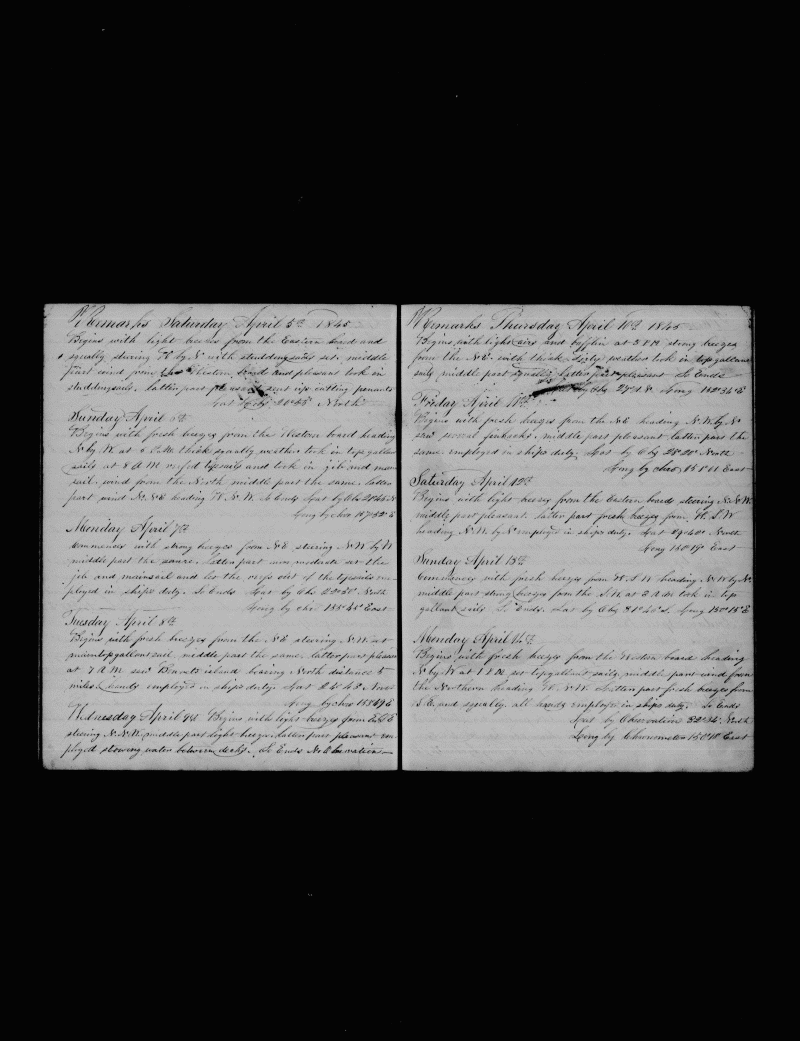 Remarks Saturday April 5th 1845
Begins with light breezes from the Eastern board and
squally steering W by N with studdingsails set. middle
part wind from the Western board and pleasant took in
studdingsails. latter part pleasant sent up cutting penants
Lat by Obs North
Sunday April 6th
Begins with fresh breezes from the Western board heading
N by W. at 6 P.M. thick squally weather took in top gallant
sails at 8 A M reefd topsails and took in jib and main
sail. wind from the North middle part the same. latter
part wind N.N.E heading W. N. W. So Ends Lat by Obs
Long by chro
Monday April 7th
Commences with strong breezes from N E steering N. W by W
middle part the same. Latter part more moderate set the
jib and mainsail and let the reefs out of the topsails em-
ployed in ships duty. So Ends Lat by Obs North
Long by chr East
Tuesday April 8th
Begins with fresh breezes from the N E steering N. W set
maintopgallant sail. middle part the same. latter part pleasant
at 7 A M saw island bearing North distance 5
miles. hands employed in ships duty. Lat North
Long by chro E
Wednesday April 9th Begins with light breezes from
steering N.N.W. middle part light breezes. latter part pleasant em-
ployed stowing water between decks. So Ends No Observation
Remarks Thursday April 10th 1845
Begins with light airs and at 3 P M strong breezes
from the N E with thick weather took in top gallant
sails middle part squally latter part pleasant So Ends
by Obs N. Long E
Friday April 11th
Begins with fresh breezes from the N E heading N. W. by N
saw several finbacks. middle part pleasant. latter part the
same employed in ships duty Lat by Obs North
Long by chro East
Saturday April 12th
Begins with light breezes from the Eastern board steering N. N. W.
middle part pleasant. latter part fresh breezes from W. S. W
heading N. W. by N employed in ships duty. Lat North
Long East
Sunday April 13th
Commences with fresh breezes from W. S. W heading N. W by N.
middle part strong breezes from the S. W. at 3 A M took in top
gallant sails So Ends. Lat by Obs Long E
Monday April 14th
Begins with fresh breezes from the Western board heading
N by W at 1 P M set topgallant sails, middle part wind from
the Northern heading W. N. W. Latter part fresh breezes from
and squally. all hands employed in ships duty. So Ends
Lat by Observation North
Long by Chronometer East